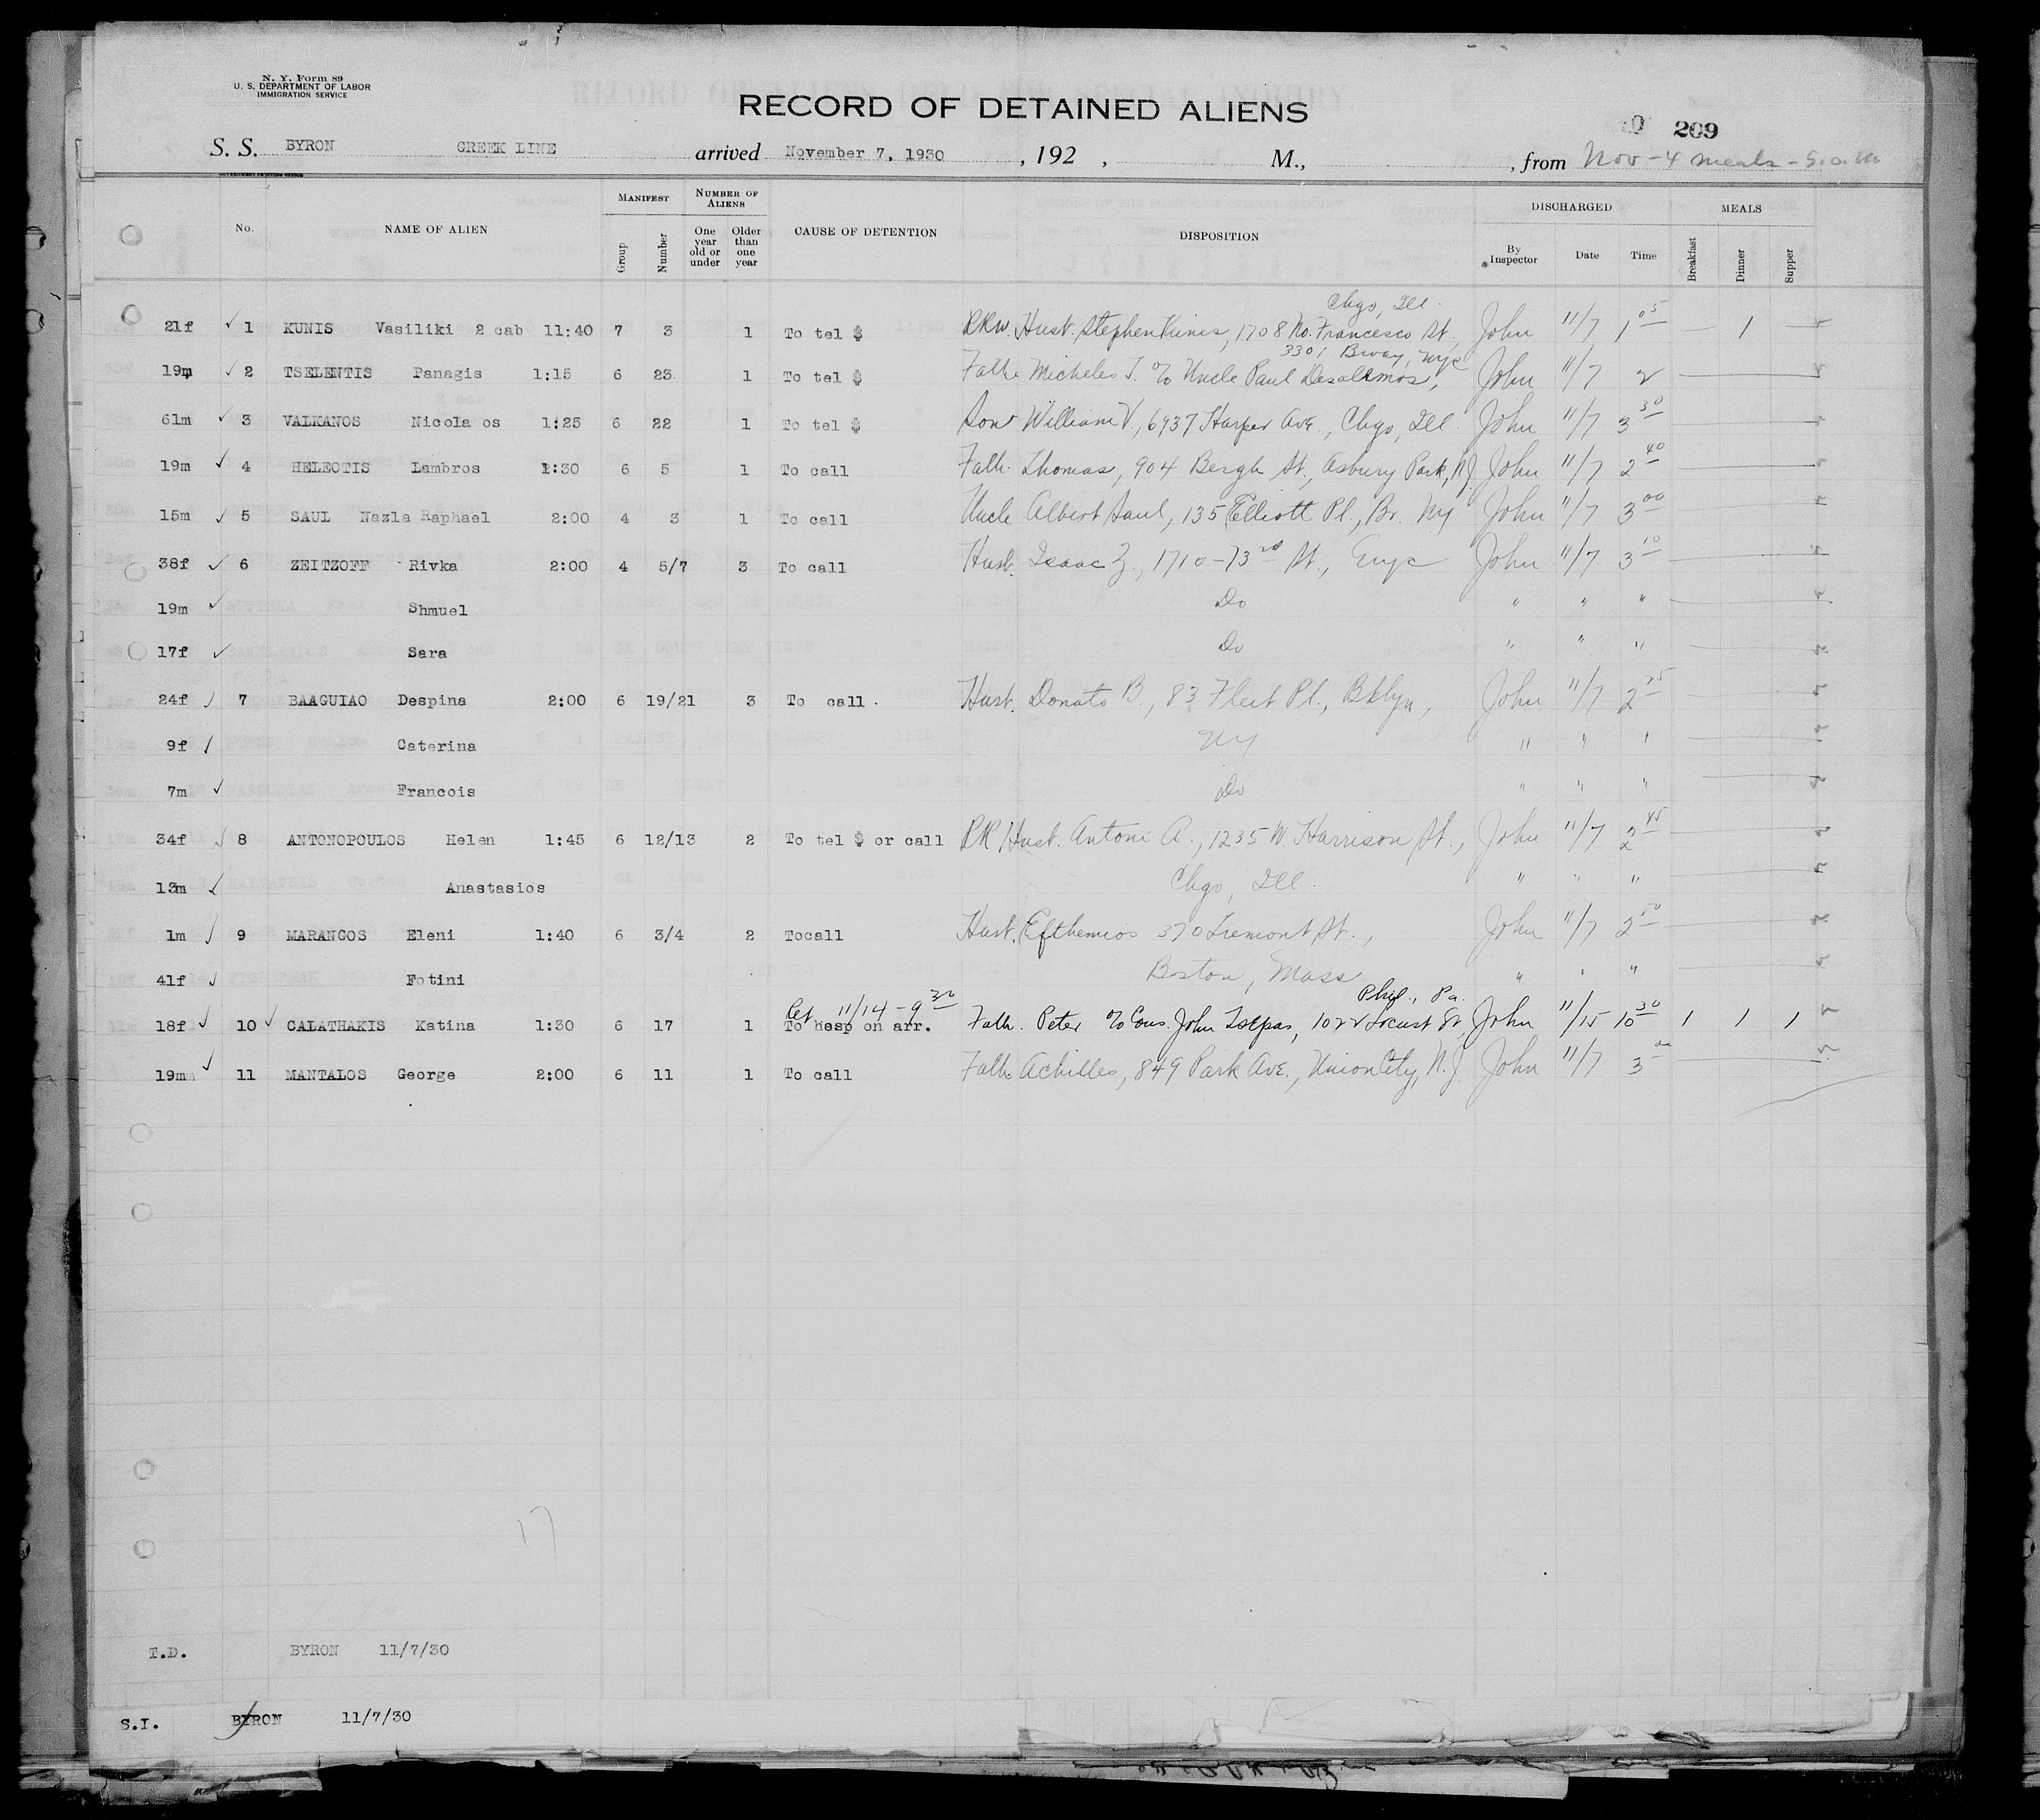 N. Y. Form 89
U. S. DEPARTMENT OF LABOR
IMMIGRATION SERVICE
RECORD OF DETAINED ALIENS
209
S. S. BYRON GREEK LINE arrived November 7, 1930 , 192 , M., , from Nov - 4 meals -
No. NAME OF ALIEN MANIFEST Group Number NUMBER OF ALIENS One year old or under Older than one year CAUSE OF DETENTION DISPOSITION DISCHARGED By Inspector Date Time MEALS Breakfast Dinner Supper
Chgo, Ill.
21f ✓ 1 KUNIS Vasiliki 2 cab 11:40 7 3 1 To tel $ RRW. Husb. Stephen Kunis, 1708 No. Francesco St., John 11/7 1 05 1
3301 Bway, NYC
19m ✓ 2 TSELENTIS Panagis 1:15 6 23 1 To tel $ Fath. Micheles T. c/o Uncle Paul John 11/7 2
61m ✓ 3 VALKANOS Nicola os 1:25 6 22 1 To tel $ Son William V., 6937 Harper Ave., Chgo, Ill. John 11/7 3 30
19m ✓ 4 HELEOTIS Lambros 1:30 6 5 1 To call Fath. Thomas, 904 Bergh St., Asbury Park, NJ John 11/7 2 40
15m ✓ 5 SAUL Nazla Raphael 2:00 4 3 1 To call Uncle Albert Saul, 135 Elliott Pl., Br. NY John 11/7 3 00
38f ✓ 6 ZEITZOFF Rivka 2:00 4 5/7 3 To call Husb. Isaac Z., 1710-73rd St., John 11/7 3 10
19m ✓ Shmuel Do " " "
17f ✓ Sara Do " " "
24f ✓ 7 BAAGUIAO Despina 2:00 6 19/21 3 To call. Husb. Donato B., 83 Fleet Pl., Bklyn, John 11/7 2 25
9f ✓ Caterina NY " " "
7m ✓ Francois Do " " "
34f ✓ 8 ANTONOPOULOS Helen 1:45 6 12/13 2 To tel $ or call RR Husb. Antoni A., 1235 W. Harrison St., John 11/7 2 45
13m ✓ Anastasios Chgo, Ill. " " "
1m ✓ 9 MARANGOS Eleni 1:40 6 3/4 2 Tocall Husb. Efthemios 370 Tremont St., John 11/7 2 50
41f ✓ Fotini Boston, Mass " " "
11/14 - 9 30 Phil., Pa.
18f ✓ 10 ✓ CALATHAKIS Katina 1:30 6 17 1 To hosp on arr. Fath. Peter c/o Cous. John 1022 Locust St, John 11/15 10 30 1 1 1
19m ✓ 11 MANTALOS George 2:00 6 11 1 To call Fath. Achilles, 849 Park Ave., Union City, N.J. John 11/7 3 00
17
T.D. BYRON 11/7/30
S.I. BYRON 11/7/30